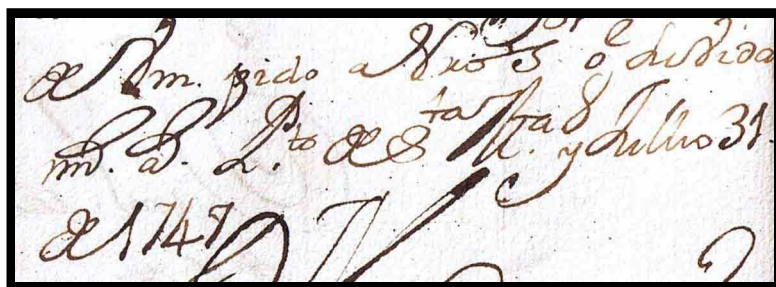 de Vm. pido a Nro S. g^e su vida
m^s. a^s. P.^to de S^ta M^ta. y Jullio 31.
de 1741